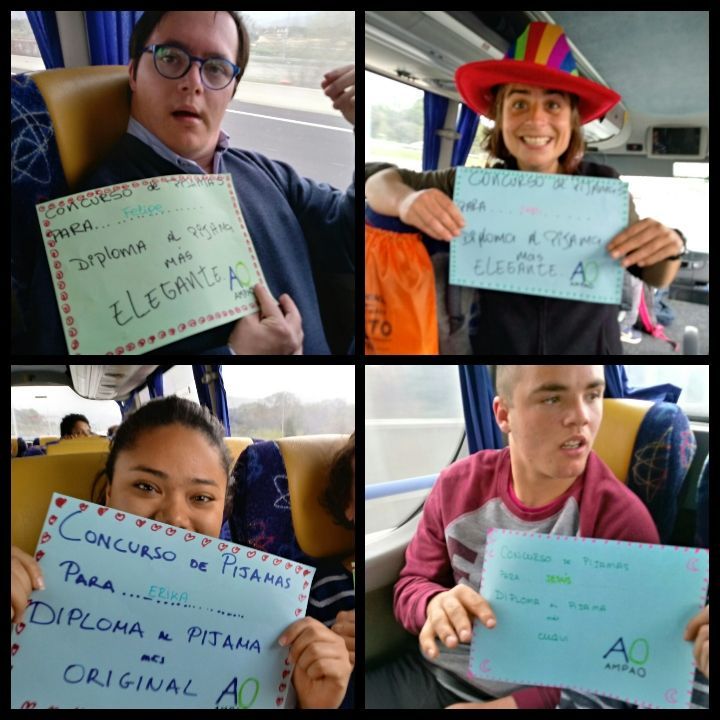 CONCURSO DE PIJAMAS
PARA... Felipe
DIPLOMA AL PIJAMA
MAS
ELEGANTE
AO
AMPAO
CONCURSO DE PIJAMAS
PARA...
DIPLOMA AL PIJAMA
MAS
ELEGANTE.
AO
AMPAO
CONCURSO DE PIJAMAS
PARA... ERIKA
DIPLOMA AL PIJAMA
MÁS
ORIGINAL
AO
CONCURSO DE PIJAMAS
PARA... JESÚS
DIPLOMA AL PIJAMA
MÁS
CUQUI
AO
AMPAO